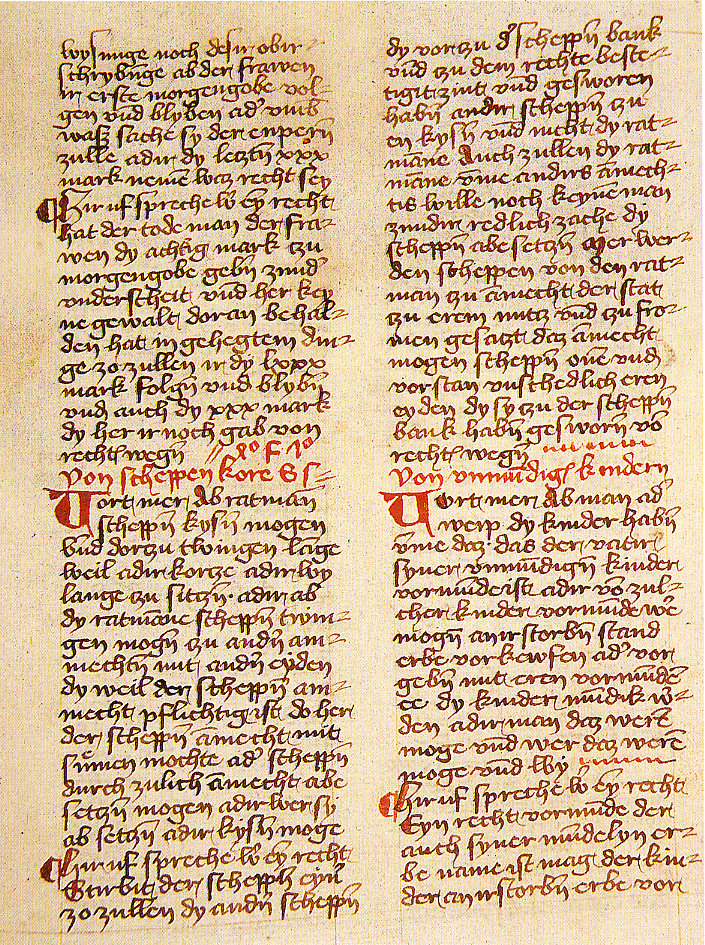 wysunge noch desir obir
schrybūge ab der frawen
ir erste morgengobe vol
gen vnd blyben ad' vmb
waß sache sy der enpern̄
zulle adir dy leztn̄ xxx
mark neme waz recht sey
Hir uf spreche w' ey recht
hat der tode man der fra
wen dy achtig mark czu
morgengobe gebn̄ zund'
vnderscheit vnd her key
ne gewalt doran behal
den hat in gehegtem din
ge zo zullen ir dy lxxx
mark folgn̄ vnd blybn̄
vnd auch dy xxx mark
dy her ir noch gab von
recht wegn̄
Von scheppen kore
Vort mer Ab ratman
scheppn̄ kysn̄ mogen
vnd dorczu twingen lange
weil adir korcze adir wy
lange zu sitczn̄ adir ab
dy ratmāne scheppn̄ twin
gen mogn̄ czu andn̄ am
mechtn̄ mit andn̄ eyden
dy weil der scheppn̄ am
mecht pflichtig ist do her
der scheppn̄ āmecht mit
sumen mochte ad' scheppn̄
durch zulich āmecht abe
setczn̄ mogen adir wer sy
ab setczn̄ adir kysn̄ moge
Hir uf spreche w' ey recht
Stirbit der scheppn̄ eyn̄
zo zullen dy andn̄ scheppn̄
dy vor czu d' scheppn̄ bank
vnd czu dem rechte beste
tigit zint vnd gesworen
habn̄ andir scheppn̄ czu
en kysn̄ vnd nicht dy rat
mane Auch zullen dy rat
māne vme andirs āmech
tis wille noch keynē man
zundir redlich zache dy
scheppn̄ abe setczn̄ Mer wer
den scheppen von den rat
man czu āmecht der stat
czu erem nutcz vnd czu fro
men gesatczt daz āmecht
mogen scheppn̄ one vnd
vorstan vnschedlich eren
eyden dy sy czu der scheppn̄
bank habn̄ gesworn vō
recht wegn̄
Von vnmūdig kindern
Vort mer Ab man ad'
weip dy kinder habn̄
vme daz das der vatir
syner vnmūdign̄ kinder
vormūde ist adir vō zul
cher kinder vormūde we
mogn̄ an irstorbn̄ stand
erbe vorkewfen ad' vor
gebn̄ mit eren vormūdē
ee dy kinder mūdik w
den adir man daz were
moge vnd wer daz weren
moge vnd wy
Hir uf spreche w' ey recht
Eyn recht vormūde der
auch syner mūdelyn er
be name ist mag der kin
der an irstorbn̄ erbe vor